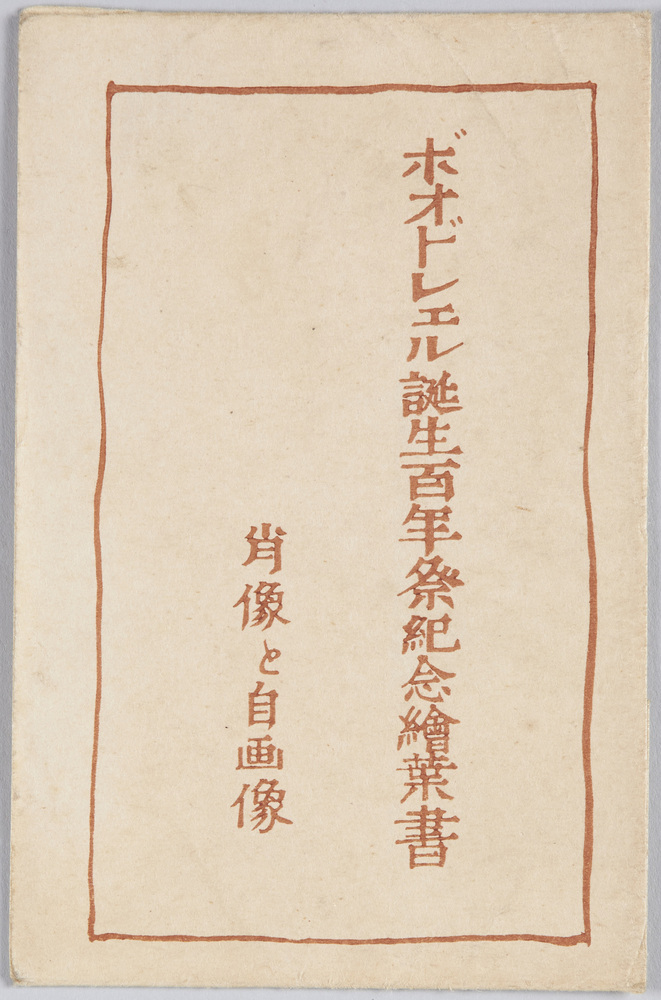 ボオドレェル誕生百年祭紀念繪葉書
肖像と自画像